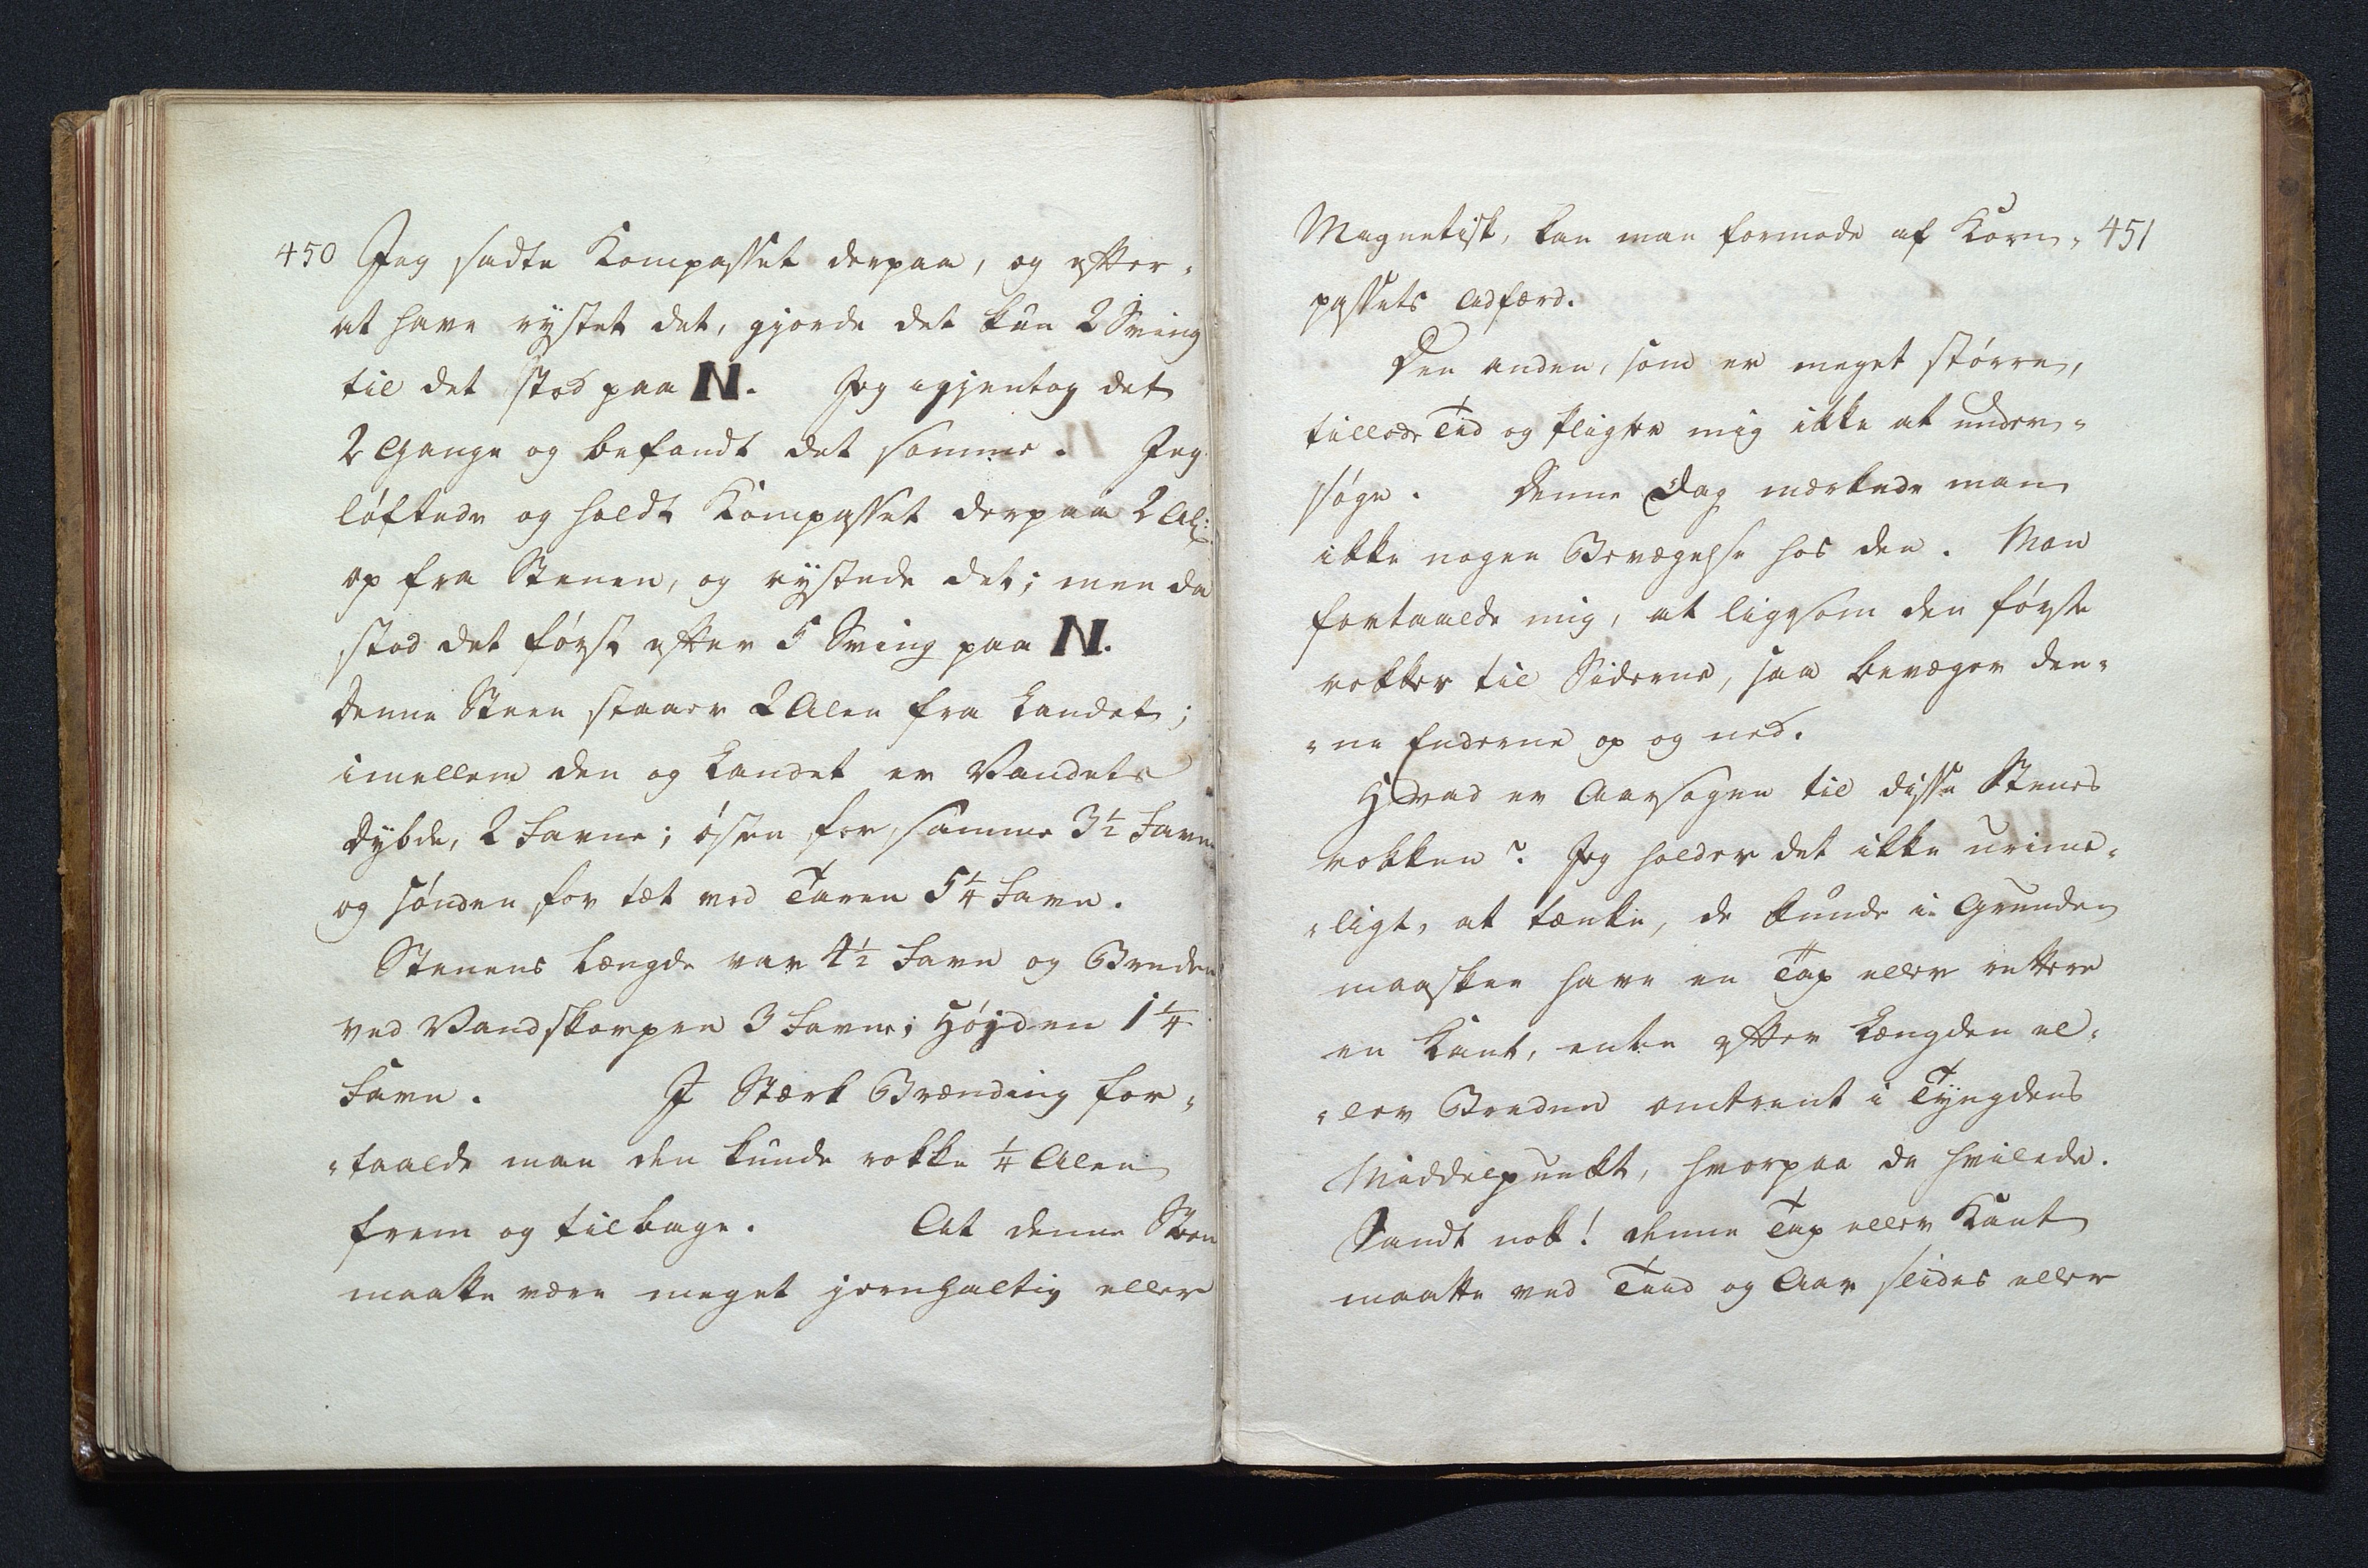 450 Jeg sadte Kompasset derpaa, og efter-
at have rystet det, gjorde det kun 2 Sving
til det stod paa N. Jeg igjentog det
2 Gange og befandt det samme. Jeg
løftede og holdt Kompasset derpaa 2 Al:
op fra Stenen, og rystede det; men da
stod det først efter 5 Sving paa N.
Denne Steen staaer 2 Alen fra Landet;
imellem den og Landet er Vandets
Dybde, 2 Favne; østen for samme 3½ Favn
og sønden for tæt ved Taren 5¼ Favn.
Stenens Længde var 4½ Favn og Breden
ved Vandskorpen 3 Favne; Højden 1¼
Favn. I Stærk Brænding for-
-taalde man den kunde rokke ¼ Alen
frem og tilbage. At denne Steen
maatte være meget jernhaltig eller
Magnetisk, kan man formode af Kom- 451
passets Adfærd.
Den anden, som er meget større,
tillode Tid og Pligter mig ikke at under-
søge. Denne Dag mærkede man
ikke nogen Bevægelse hos den. Man
fortaalde mig, at ligesom den første
rokker til Siderne, saa bevæger den-
-ne Enderne op og ned.
Hvad er Aarsagen til disse Stenes
rokken? Jeg holder det ikke urime-
-ligt, at tænke, de kunde i Grunden
maaskee have en Tap eller rettere
en Kant, enten efter Længden el-
-ler Breden omtrent i Tyngdens
Middelpunkt, hvorpaa de hvilede.
Sandt nok! denne Tap eller Kant
maatte ved Tiid og Aar slides eller